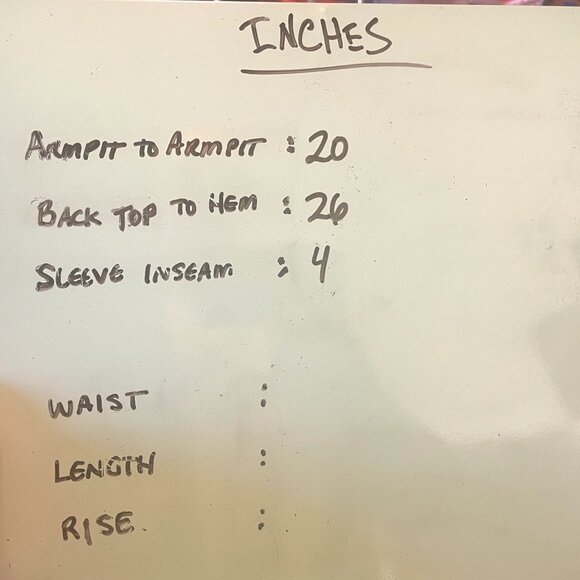 INCHES
ARMPIT TO ARMPIT : 20
BACK TOP TO HEM : 26
SLEEVE INSEAM : 4
WAIST :
LENGTH :
RISE. :